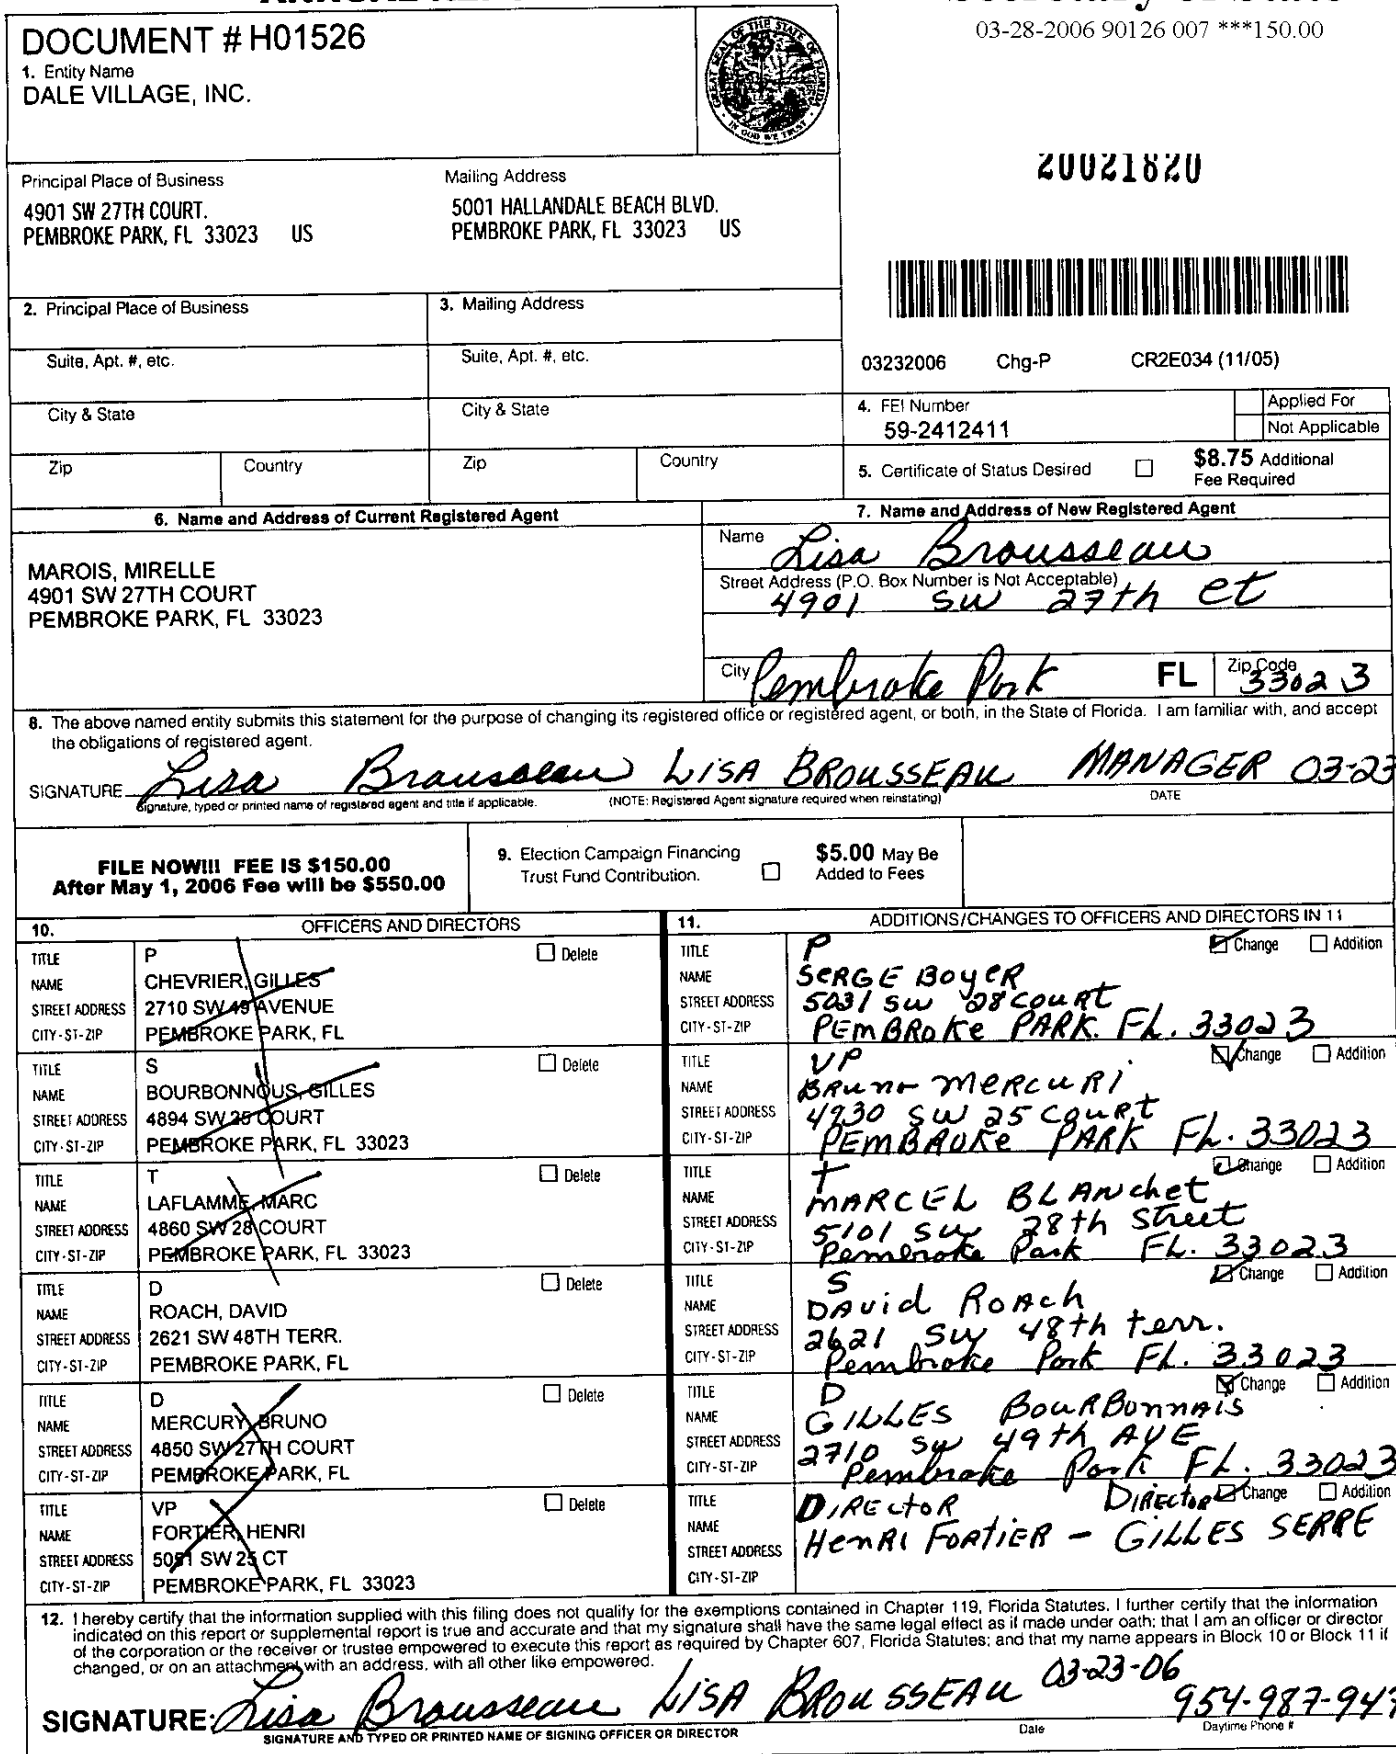 DOCUMENT # H01526
03-28-2006 90126 007 ***150.00
1. Entity Name
DALE VILLAGE, INC.
GREAT SEAL OF THE STATE OF FLORIDA
IN GOD WE TRUST
20021820
Principal Place of Business
4901 SW 27TH COURT.
PEMBROKE PARK, FL 33023 US
Mailing Address
5001 HALLANDALE BEACH BLVD.
PEMBROKE PARK, FL 33023 US
2. Principal Place of Business
3. Mailing Address
Suite, Apt. #, etc.
Suite, Apt. #, etc.
03232006 Chg-P CR2E034 (11/05)
City & State
City & State
4. FEI Number
59-2412411
Applied For
Not Applicable
Zip
Country
Zip
Country
5. Certificate of Status Desired
$8.75 Additional
Fee Required
6. Name and Address of Current Registered Agent
MAROIS, MIRELLE
4901 SW 27TH COURT
PEMBROKE PARK, FL 33023
7. Name and Address of New Registered Agent
Name Lisa Brousseau
Street Address (P.O. Box Number is Not Acceptable)
4901 SW 27th ct
City Pembroke Park FL Zip Code 33023
8. The above named entity submits this statement for the purpose of changing its registered office or registered agent, or both, in the State of Florida. I am familiar with, and accept
the obligations of registered agent.
SIGNATURE Lisa Brousseau LISA BROUSSEAU MANAGER 03-23
Signature, typed or printed name of registered agent and title if applicable. (NOTE: Registered Agent signature required when reinstating) DATE
FILE NOW!!! FEE IS $150.00
After May 1, 2006 Fee will be $550.00
9. Election Campaign Financing
Trust Fund Contribution.
$5.00 May Be
Added to Fees
10. OFFICERS AND DIRECTORS
TITLE P Delete
NAME CHEVRIER, GILLES
STREET ADDRESS 2710 SW 49 AVENUE
CITY-ST-ZIP PEMBROKE PARK, FL
TITLE S Delete
NAME BOURBONNOUS, GILLES
STREET ADDRESS 4894 SW 25 COURT
CITY-ST-ZIP PEMBROKE PARK, FL 33023
TITLE T Delete
NAME LAFLAMME, MARC
STREET ADDRESS 4860 SW 28 COURT
CITY-ST-ZIP PEMBROKE PARK, FL 33023
TITLE D Delete
NAME ROACH, DAVID
STREET ADDRESS 2621 SW 48TH TERR.
CITY-ST-ZIP PEMBROKE PARK, FL
TITLE D Delete
NAME MERCURY, BRUNO
STREET ADDRESS 4850 SW 27TH COURT
CITY-ST-ZIP PEMBROKE PARK, FL
TITLE VP Delete
NAME FORTIER, HENRI
STREET ADDRESS 5051 SW 25 CT
CITY-ST-ZIP PEMBROKE PARK, FL 33023
11. ADDITIONS/CHANGES TO OFFICERS AND DIRECTORS IN 11
TITLE P Change Addition
NAME SERGE BOYER
STREET ADDRESS 5031 SW 28 COURT
CITY-ST-ZIP PEMBROKE PARK. FL. 33023
TITLE VP Change Addition
NAME BRUNO MERCURI
STREET ADDRESS 4930 SW 25 COURT
CITY-ST-ZIP PEMBROKE PARK FL. 33023
TITLE T Change Addition
NAME MARCEL BLANchet
STREET ADDRESS 5101 SW 28th Street
CITY-ST-ZIP Pembroke Park FL. 33023
TITLE S Change Addition
NAME DAVID ROACH
STREET ADDRESS 2621 SW 48th terr.
CITY-ST-ZIP Pembroke Park FL. 33023
TITLE D Change Addition
NAME GILLES BOURBONNAIS
STREET ADDRESS 2710 SW 49th AVE
CITY-ST-ZIP Pembroke Park FL. 33023
TITLE DIRECTOR DIRECTOR Change Addition
NAME HENRI FORTIER - GILLES SERRE
STREET ADDRESS
CITY-ST-ZIP
12. I hereby certify that the information supplied with this filing does not qualify for the exemptions contained in Chapter 119, Florida Statutes. I further certify that the information
indicated on this report or supplemental report is true and accurate and that my signature shall have the same legal effect as if made under oath; that I am an officer or director
of the corporation or the receiver or trustee empowered to execute this report as required by Chapter 607, Florida Statutes; and that my name appears in Block 10 or Block 11 if
changed, or on an attachment with an address, with all other like empowered.
SIGNATURE: Lisa Brousseau LISA BROUSSEAU 03-23-06 954-987-947
SIGNATURE AND TYPED OR PRINTED NAME OF SIGNING OFFICER OR DIRECTOR Date Daytime Phone #